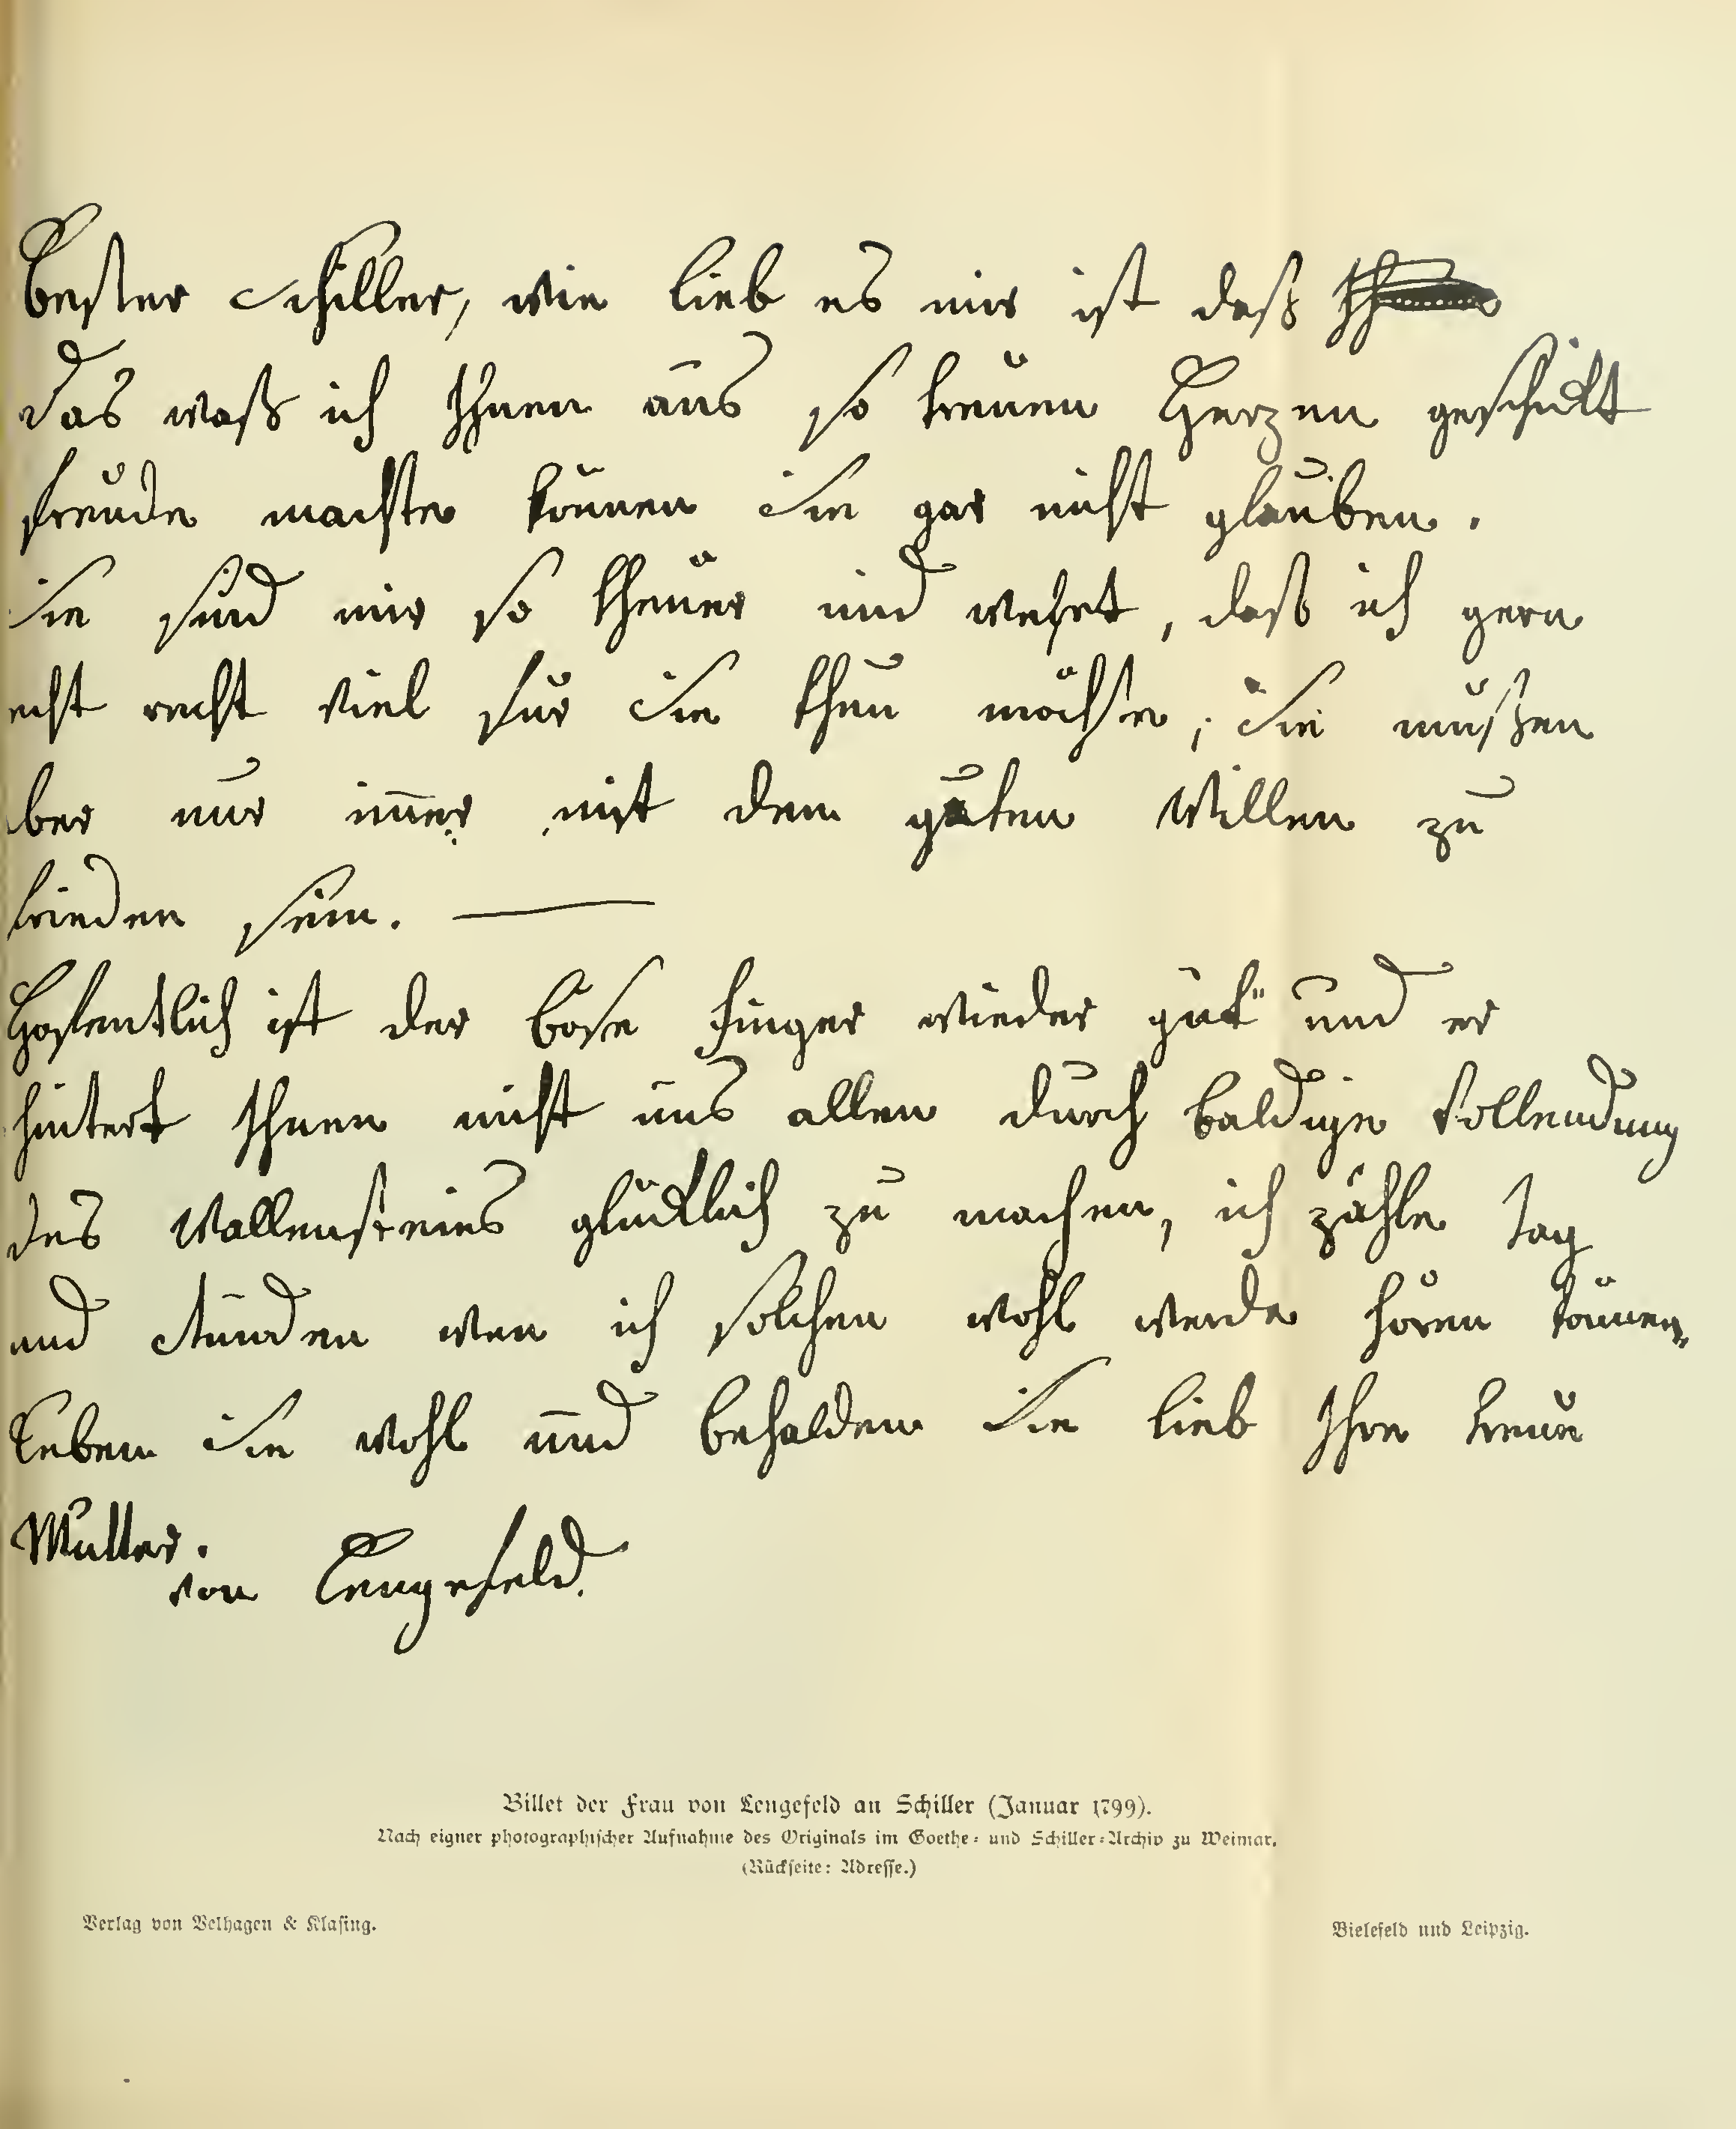 Bester Schiller, wie lieb es mir ist daß
das waß ich Ihnen aus so treuen Herzen geschickt
freude machte können Sie gar nicht glauben.
Sie sind mir so theuer und wehrt, daß ich gern
echt recht viel für Sie thun möchte, Sie müßen
ber nur im̄er mit dem guten Willen zu
frieden sein. —
Hofentlich ist der böse finger wieder gut und er
hintert Ihnen nicht uns allen durch baldige Vollendung
des Wallensteins glücklich zu machen, ich zähle Tag
und Stunden wen ich solchen wohl werde hören können
Leben Sie wohl und behalden Sie lieb Ihre treue
Mutter.
von Lengefeld.
Billet der Frau von Lengefeld an Schiller (Januar 1799).
Nach eigner photographischer Aufnahme des Originals im Goethe- und Schiller-Archiv zu Weimar.
(Rückseite: Adresse.)
Verlag von Velhagen & Klasing. Bielefeld und Leipzig.